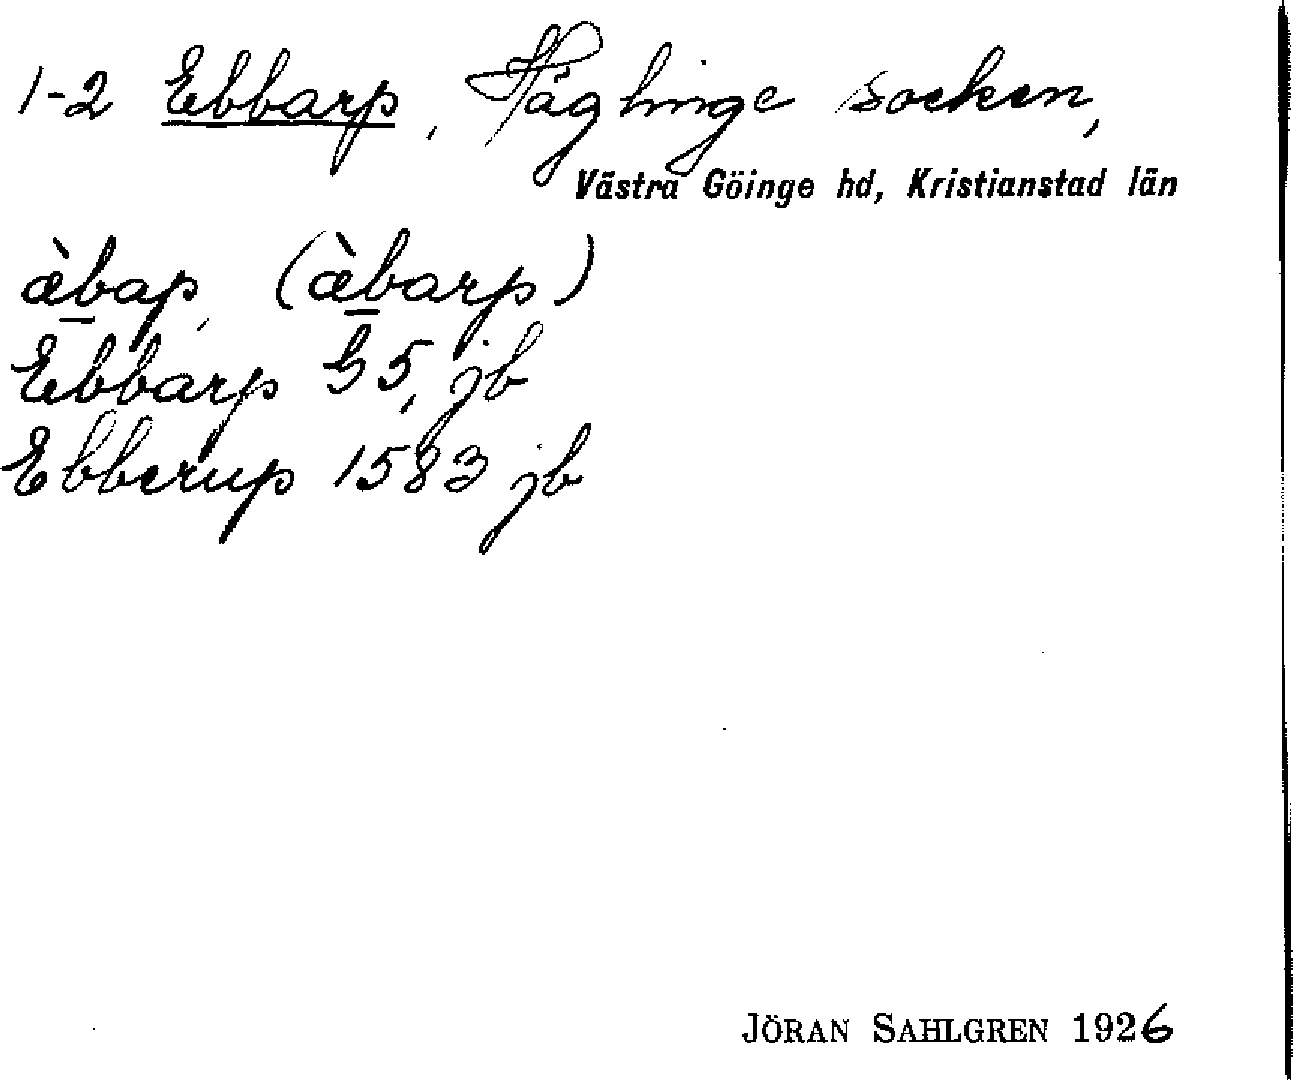 1-2 Ebbarp, Häglinge socken,
Västra Göinge hd, Kristianstad län
æ̀b̲ap, (æ̀b̲arp)
Ebbarp G5, jb
Ebberup 1583 jb
JÖRAN SAHLGREN 1926